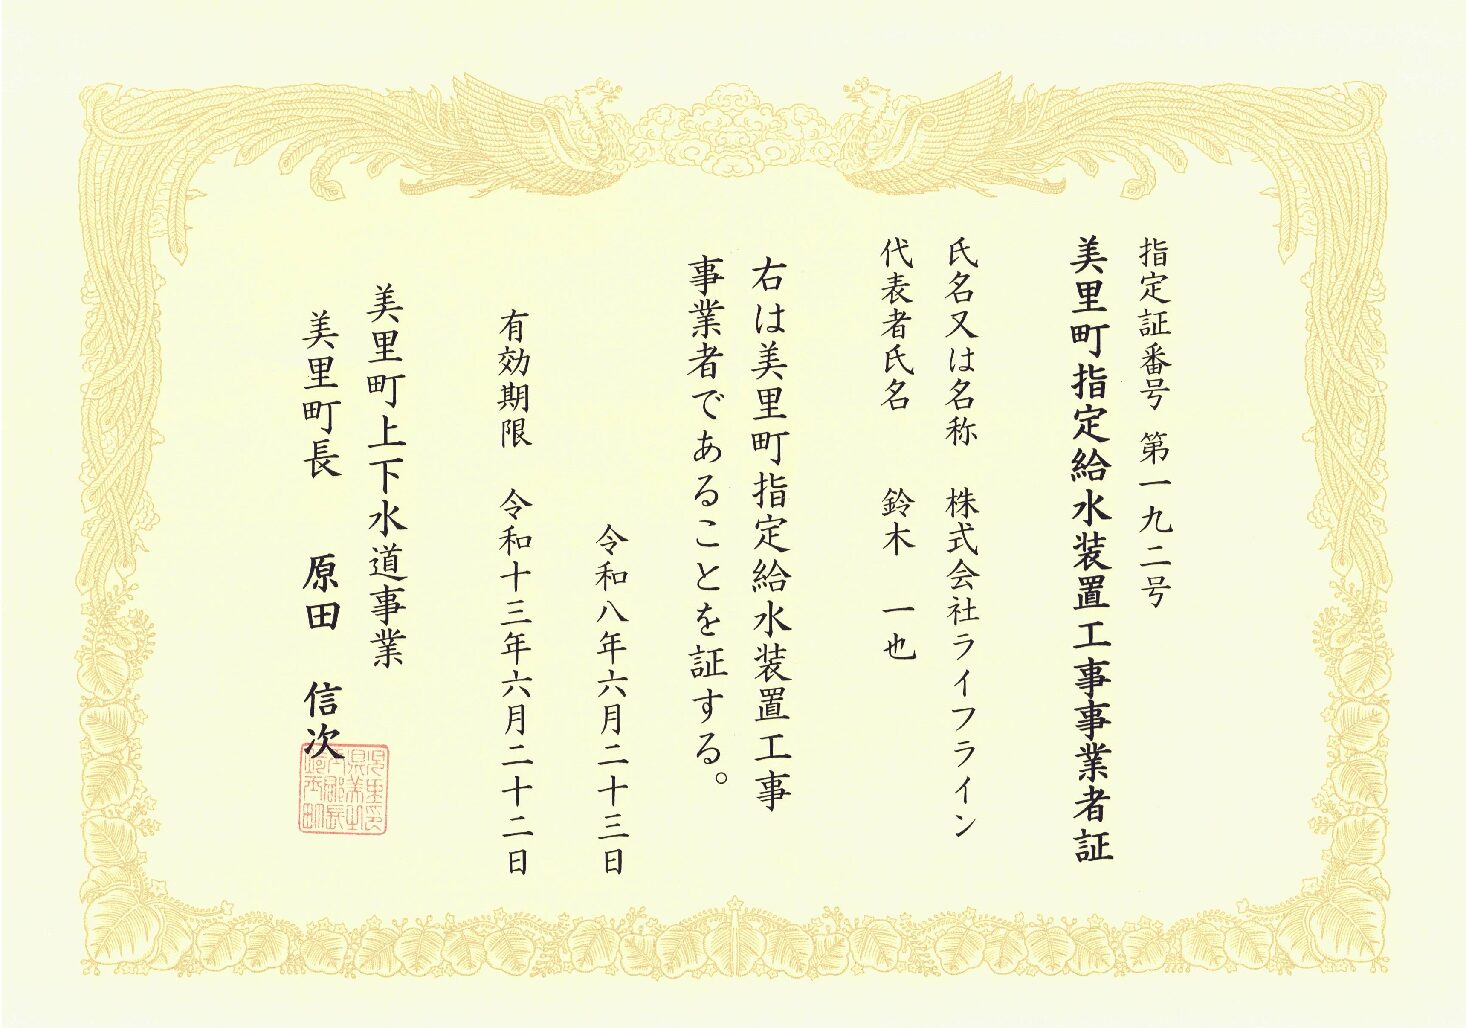 指定証番号 第一九二号
美里町指定給水装置工事事業者証
氏名又は名称 株式会社ライフライン
代表者氏名 鈴木 一也
右は美里町指定給水装置工事
事業者であることを証する。
令和八年六月二十三日
有効期限 令和十三年六月二十二日
美里町上下水道事業
美里町長 原田 信次